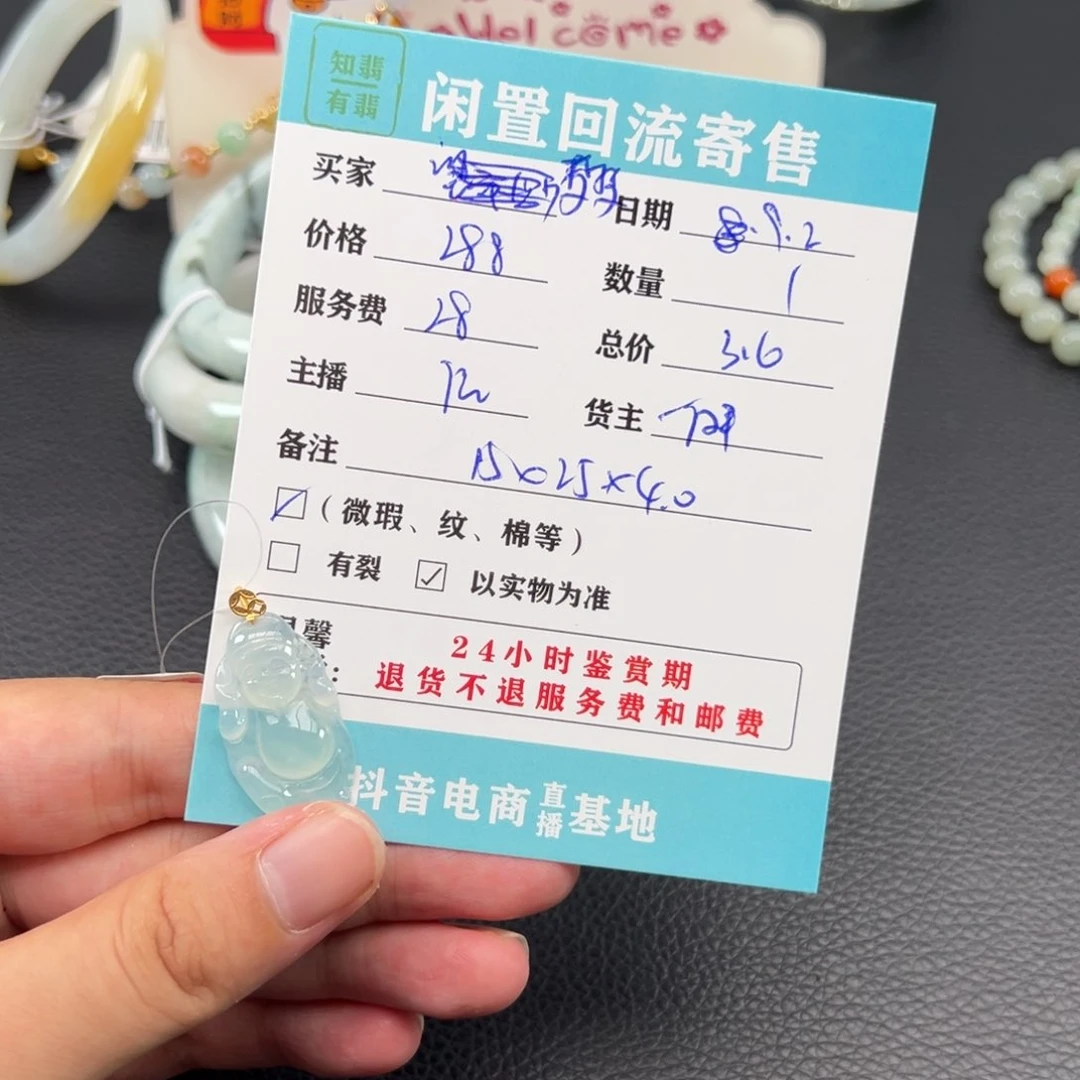 Welcome
知翡
有翡
闲置回流寄售
买家
日期 9.2
价格 288
数量 1
服务费 28
总价 316
主播
货主
备注 15×25×4.0
(微瑕、纹、棉等)
有裂 以实物为准
馨
24小时鉴赏期
退货不退服务费和邮费
抖音电商直播基地